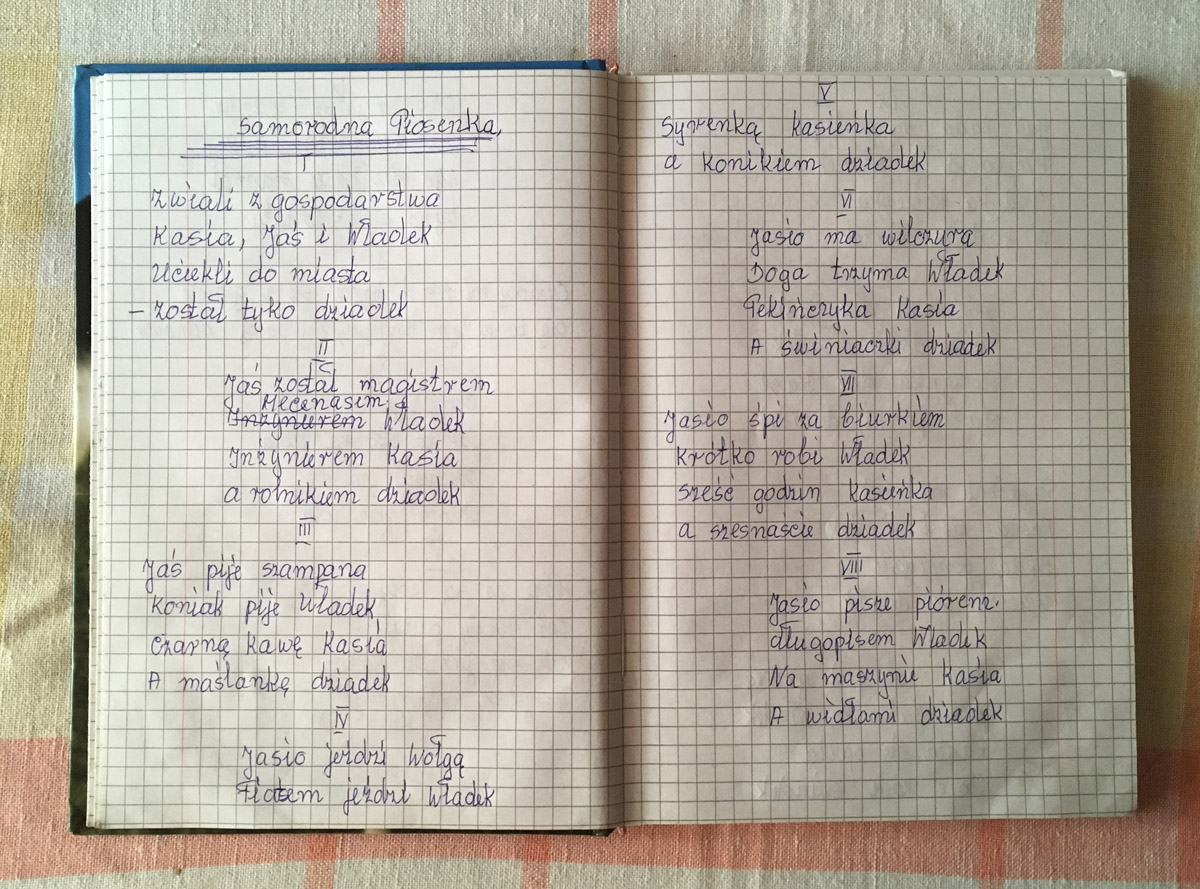 samorodna Piosenka
I
Zwiali z gospodarstwa
Kasia, Jaś i Władek
Uciekli do miasta
– został tyko dziadek
II
Jaś został magistrem
Mecenasem
Inżynierem Władek
Inżynierem Kasia
a rolnikiem dziadek
III
Jaś pije szampana
Koniak pije Władek
Czarną kawę Kasia
A maślankę dziadek
IV
Jasio jeździ Wołgą
Fiatem jeździ Władek
V
Syrenką Kasieńka
a konikiem dziadek
VI
Jasio ma wilczura
Doga trzyma Władek
Pekińczyka Kasia
A świniaczki dziadek
VII
Jasio śpi za biurkiem
krótko robi Władek
sześć godzin Kasieńka
a szesnaście dziadek
VIII
Jasio pisze piórem.
długopisem Władek
Na maszynie Kasia
A widłami dziadek